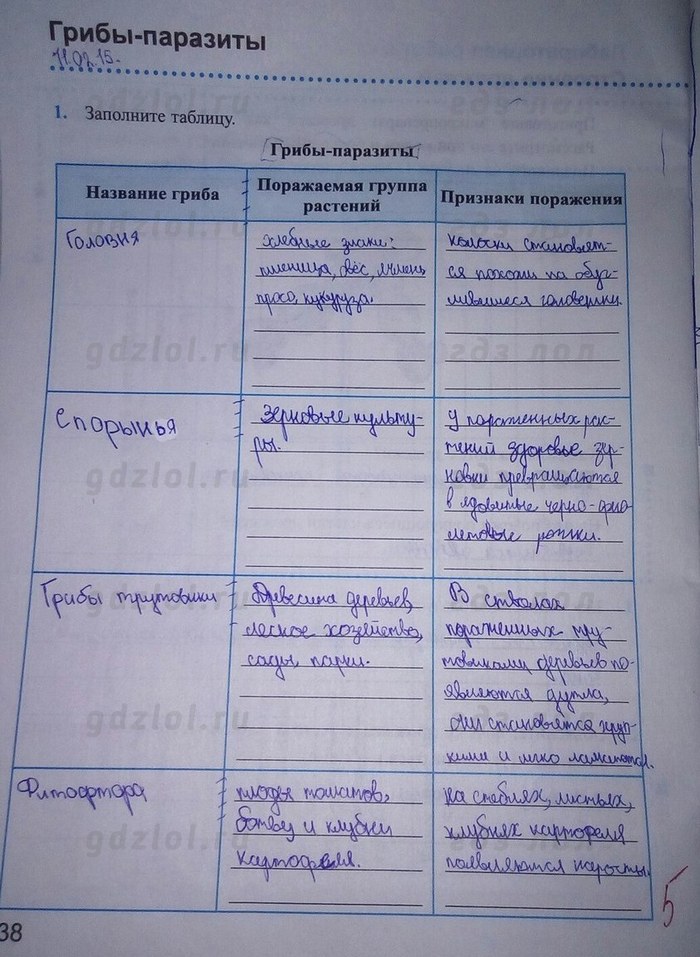 Грибы-паразиты
11.02.15.
1. Заполните таблицу.
Грибы-паразиты
Название гриба
Поражаемая группа
растений
Признаки поражения
Головня
хлебные злаки:
пшеница, овёс, ячмень
просо, кукуруза.
колоски становят-
ся похожи на обуг-
лившиеся головешки.
Спорынья
Зерновые культу-
ры.
У пораженных рас-
тений здоровые зер-
новки превращаются
в ядовитые черно-фио-
летовые рожки.
Грибы трутовики
Древесина деревьев,
лесное хозяйство,
сады, парки.
В стволах
пораженных тру-
товиками деревьев по-
являются дупла,
они становятся хруп-
кими и легко ламаются.
Фитофтора
плоды томатов,
ботву и клубни
картофеля.
на стеблях, листьях,
клубнях картофеля
появляются наросты.
5
38
gdzlol.ru
gdzlol.ru
gdzlol.ru
gdzlol.ru
gdzlol.ru
gdzlol.ru